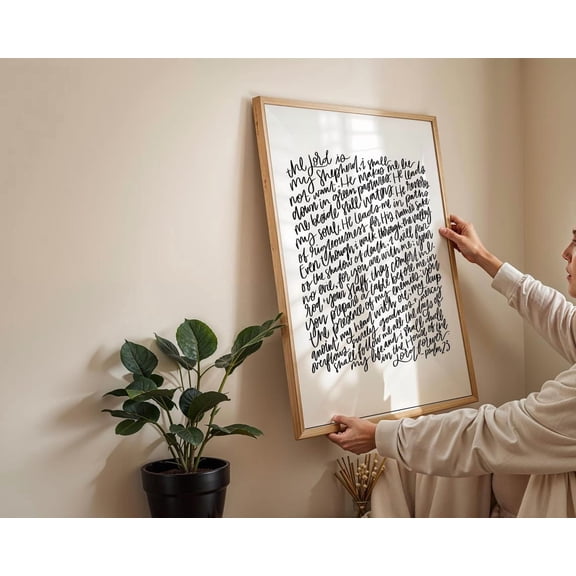 the Lord is
my shepherd, I shall
not want. He makes me lie
down in green pastures. He leads
me beside still waters. He restores
my soul. He leads me in paths
of righteousness for His name's sake
Even though I walk through the valley
of the shadow of death, I will fear
no one, for you are with me; your
rod your staff, they comfort me
You prepare a table before me in
the presence of my enemies; you
anoint my head with oil; my cup
overflows. Surely goodness & mercy
shall follow me all the days of
my life and I shall dwell
in the house of the
Lord forever
psalm 23